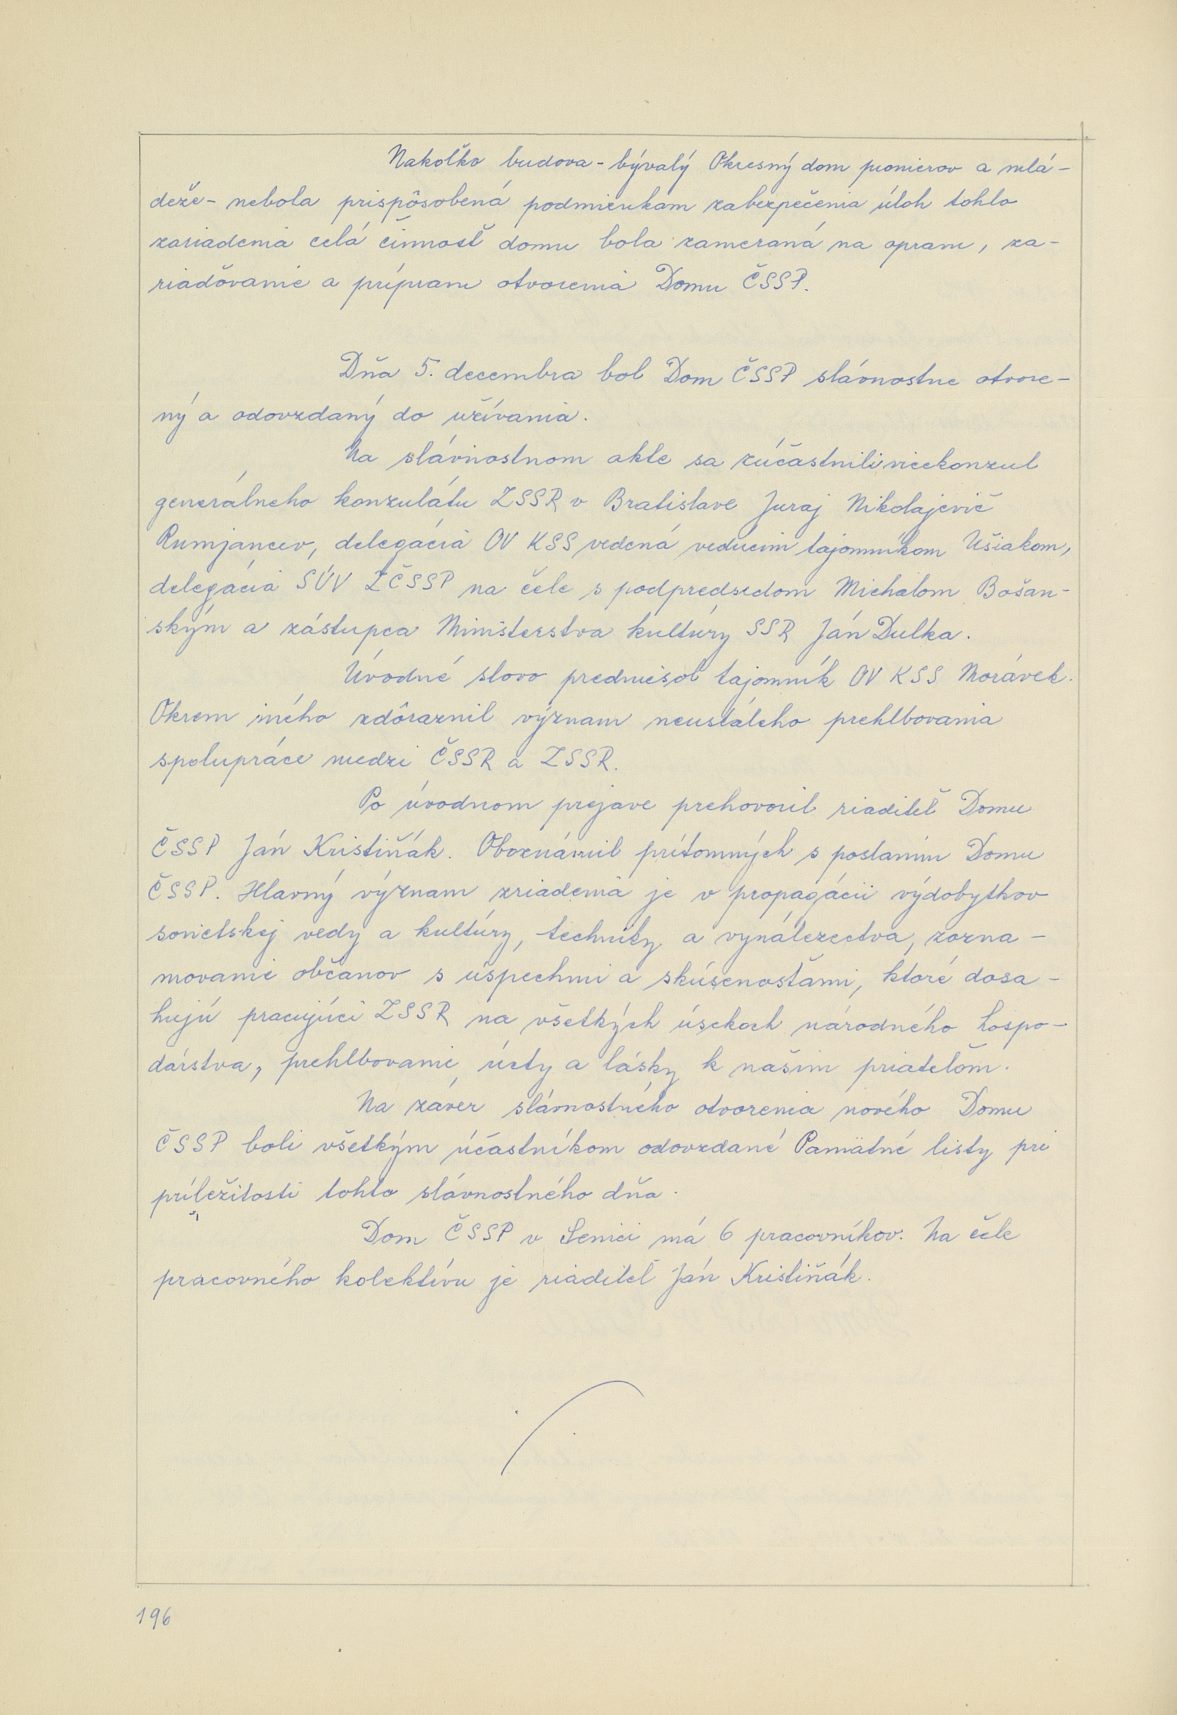 Nakoľko budova - bývalý Okresný dom pionierov a mlá-
deže - nebola prispôsobená podmienkam zabezpečenia úloh tohto
zariadenia celá činnosť domu bola zameraná na opravu, za-
riaďovanie a prípravu otvorenia Domu ČSSP.
Dňa 5. decembra bol Dom ČSSP slávnostne otvore-
ný a odovzdaný do užívania.
Na slávnostnom akte sa zúčastnili vicekonzul
generálneho konzulátu ZSSR v Bratislave Juraj Nikolajevič
Rumjancev, delegácia OV KSS vedená vedúcim tajomníkom Ušiakom,
delegácia SÚV ZČSSP na čele s podpredsedom Michalom Bošan-
ským a zástupca Ministerstva kultúry SSR Ján Dulka.
Úvodné slovo predniesol tajomník OV KSS Morávek.
Okrem iného zdôraznil význam neustáleho prehlbovania
spolupráce medzi ČSSR a ZSSR.
Po úvodnom prejave prehovoril riaditeľ Domu
ČSSP Ján Kristiňák. Oboznámil prítomných s poslaním Domu
ČSSP. Hlavný význam zriadenia je v propagácii výdobytkov
sovietskej vedy a kultúry, techniky a vynálezectva, zozna-
movanie občanov s úspechmi a skúsenosťami, ktoré dosa-
hujú pracujúci ZSSR na všetkých úsekoch národného hospo-
dárstva, prehlbovanie úcty a lásky k našim priateľom.
Na záver slávnostného otvorenia nového Domu
ČSSP boli všetkým účastníkom odovzdané Pamätné listy pri
príležitosti tohto slávnostného dňa.
Dom ČSSP v Senici má 6 pracovníkov. Na čele
pracovného kolektívu je riaditeľ Ján Kristiňák.
196